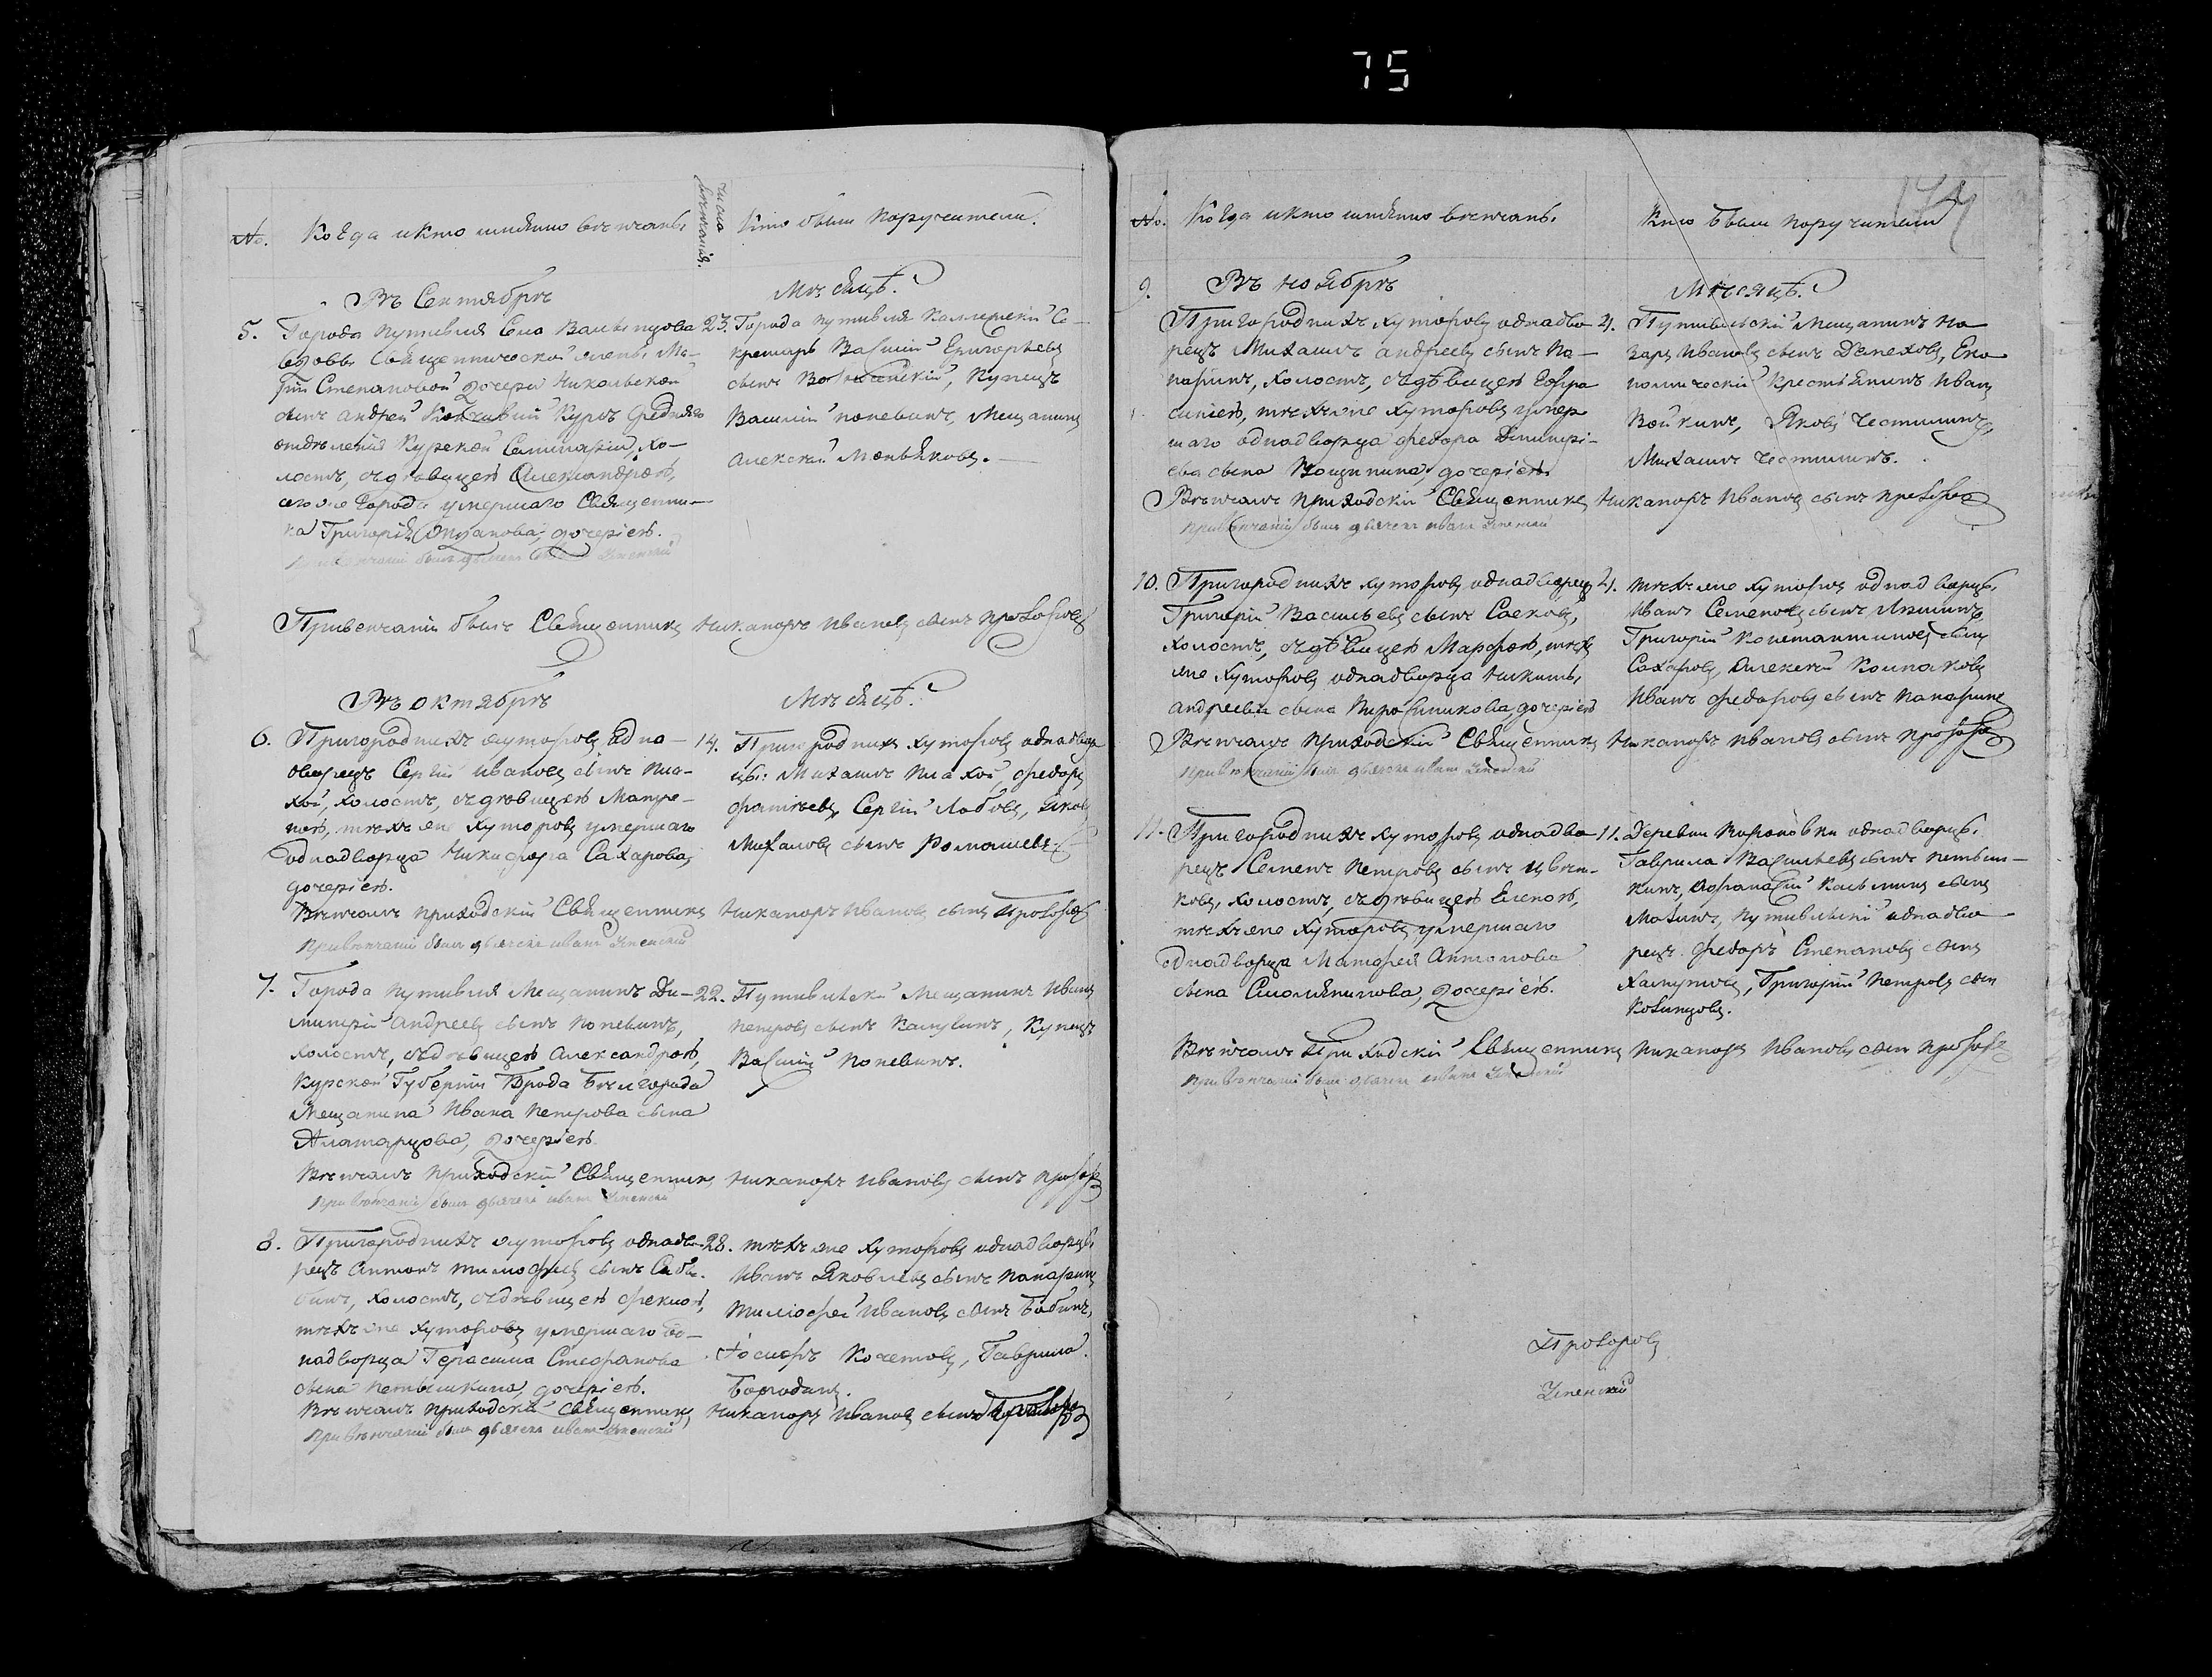 75
174
№.
Когда и кто имянно венчанъ.
числа венчанія.
Кто были поручители.
Въ Сентябрѣ
Мѣсяцѣ.
5. Города Путивля
вдовы Священнической жены Ма-
Степановой дочери Никольской
сынъ Андрей Курсъ Средняго
отдѣленія Курской Семинаріи, хо-
лостъ, съ дѣвицею Александрою,
того же Города умершаго Священни-
ка Григорія дочеріею.
23. Города Путивля Коллежскій Се-
кретарь Василій Григорьевъ
сынъ Купецъ
Василій Попевинъ, Мещанинъ
Алексѣй Меньяковъ.
Привенчаніи былъ Священникъ Никаноръ Ивановъ сынъ Прозоровъ
Въ октябрѣ
Мѣсяцѣ.
6. Пригородныхъ хуторовъ Одно-
дворецъ Сергій Ивановъ сынъ Пла-
хой, холостъ, съ дѣвицею Матре-
ною, тѣхъ же хуторовъ умершаго
однодворца Никифора Сахарова,
дочеріею.
14. Пригородныхъ хуторовъ однодвор-
цы: Михаилъ Плахой, Федоръ
Сергій Лобовъ, Яковъ
Михаловъ сынъ Ромашевъ.
Вѣнчалъ приходскій Священникъ Никаноръ Ивановъ сынъ Прозоровъ
Привѣнчаніи былъ дьячекъ Иванъ Успенскій
7. Города Путивля Мещанинъ Ди-
митрій Андреевъ сынъ Попевинъ,
холостъ, съ дѣвицею Александрою,
Курской Губерніи Города Бѣлгорода
Мещанина Ивана Петрова сына
Алатарцова, дочеріею.
22. Путивльскій Мещанинъ Иванъ
Петровъ сынъ Купецъ
Василій Попевинъ.
Вѣнчалъ приходскій Священникъ Никаноръ Ивановъ сынъ Прозоровъ
Привѣнчаніи былъ дьячекъ Иванъ Успенскій
8. Пригородныхъ хуторовъ однодво-
рецъ Антонъ Тимофеевъ сынъ
холостъ, съ дѣвицею Феклою,
тѣхъ же хуторовъ умершаго од-
нодворца Герасима Стефанова
сына Петышкина, дочеріею.
28. тѣхъ же хуторовъ однодворцы
Иванъ Яковлевъ сынъ Папаринъ
Тимофей Ивановъ сынъ Бабинъ,
Іосифъ Кочетовъ, Гаврила
Вѣнчалъ приходскій Священникъ, Никаноръ Ивановъ сынъ Прозоровъ
Привѣнчаніи былъ дьячекъ Иванъ Успенскій
№.
Когда и кто имянно венчанъ.
Кто были поручители
9. Въ ноябрѣ
Мѣсяцѣ.
Пригородныхъ хуторовъ однодво-
рецъ Михаилъ Андреевъ сынъ Па-
паринъ, холостъ, съ дѣвицею Евфра-
синіею, тѣхъ же хуторовъ умер-
шаго однодворца Федора Димитрі-
ева сына Вощинина, дочеріею.
4. Путивльскій Мещанинъ На-
заръ Ивановъ сынъ Демеховъ, Еко-
номическій Крестьянинъ Иванъ
Войкинъ, Яковъ Честилинъ,
Михаилъ Честилинъ.
Вѣнчалъ приходскій Священникъ Никаноръ Ивановъ сынъ Прозоровъ
Привѣнчаніи былъ дьячекъ Иванъ Успенскій
10. Пригородныхъ хуторовъ однодворецъ
Григорій Васильевъ сынъ Саековъ,
холостъ, съ дѣвицею Марфою, тѣхъ
же хуторовъ однодворца Никиты
Андреева сына дочеріею
4. тѣхъ же хуторовъ однодворцы
Иванъ Семеновъ сынъ
Григорій Константиновъ сынъ
Сахаровъ, Алексѣй Колпаковъ
Иванъ Федоровъ сынъ Папаринъ
Вѣнчалъ приходскій Священникъ Никаноръ Ивановъ сынъ Прозоровъ
Привѣнчаніи былъ дьячекъ Иванъ Успенскій
11. Пригородныхъ хуторовъ однодво-
рецъ Семенъ Петровъ сынъ Цвѣт-
ковъ, холостъ, съ дѣвицею Еленою,
тѣхъ же хуторовъ умершаго
однодворца Матфея Антонова
сына Смолянинова, дочеріею.
11. Деревни однодворцы
Гаврила Васильевъ сынъ Петыш-
кинъ, Афанасій сынъ
Путивльскій однодво-
рецъ Федоръ Степановъ сынъ
Григорій Петровъ сынъ
Вѣнчалъ приходскій Священникъ Никаноръ Ивановъ сынъ Прозоровъ
Привѣнчаніи былъ дьячекъ Иванъ Успенскій
Прозоровъ
Успенскій